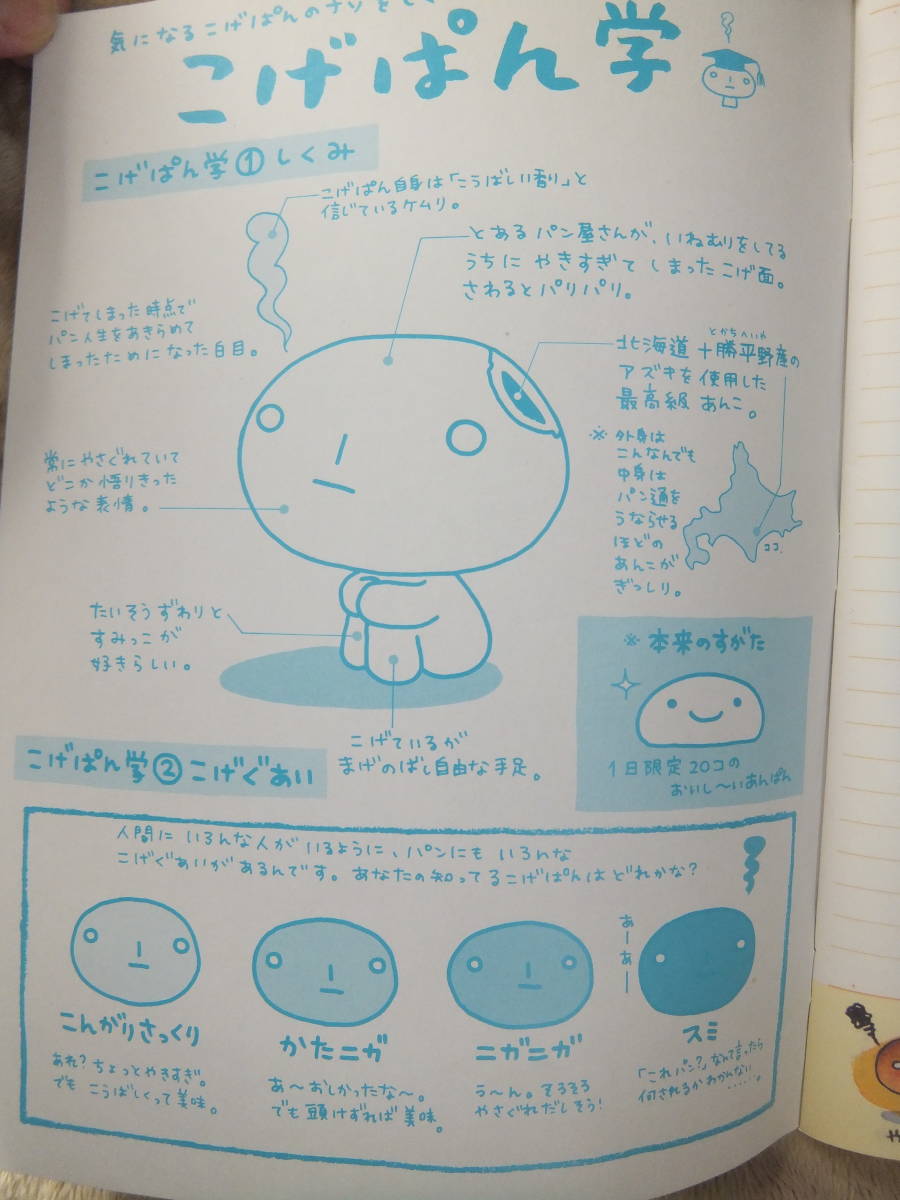 気になるこげぱんのナゾをとく
こげぱん学
こげぱん学①しくみ
こげぱん自身は「こうばしい香り」と
信じているケムリ。
とあるパン屋さんが、いねむりをしてる
うちに やきすぎて しまったこげ面。
さわるとパリパリ。
こげてしまった時点で
パン人生をあきらめて
しまったためになった白目。
とかちへいや
北海道 十勝平野産の
アズキを使用した
最高級 あんこ。
※ 外身は
こんなんでも
中身は
パン通を
うならせる
ほどの
あんこが
ぎっしり。
ココ
常にやさぐれていて
どこか悟りきった
ような表情。
たいそうずわりと
すみっこが
好きらしい。
こげているが
まげのばし自由な手足。
※ 本来のすがた
1日限定20コの
おいし〜いあんぱん
こげぱん学②こげぐあい
人間に いろんな人が いるように、パンにも いろんな
こげぐあいが あるんです。あなたの知ってるこげぱんは どれかな?
こんがりさっくり
あれ?ちょっとやきすぎ。
でも こうばしくって美味。
かたニガ
あ〜おしかったな〜。
でも頭けずれば美味。
ニガニガ
う〜ん。そろそろ
やさぐれだしそう!
あーあー
スミ
「これパン?」なんて言ったら
何されるかわかんない
……。
や